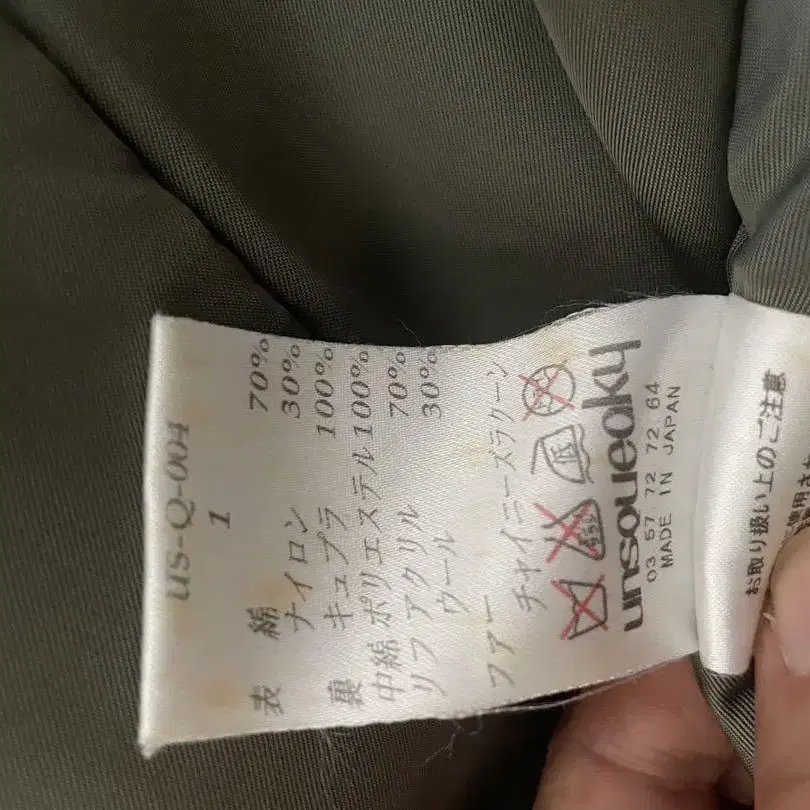 us-Q-004
1
表 綿 70%
ナイロン 30%
裏 キュプラ 100%
中綿 ポリエステル 100%
リブ アクリル 70%
ウール 30%
ファー
チャイニーズラクーン
unsqueaky
03 57 72 72 64
MADE IN JAPAN
お取り扱い上のご注意